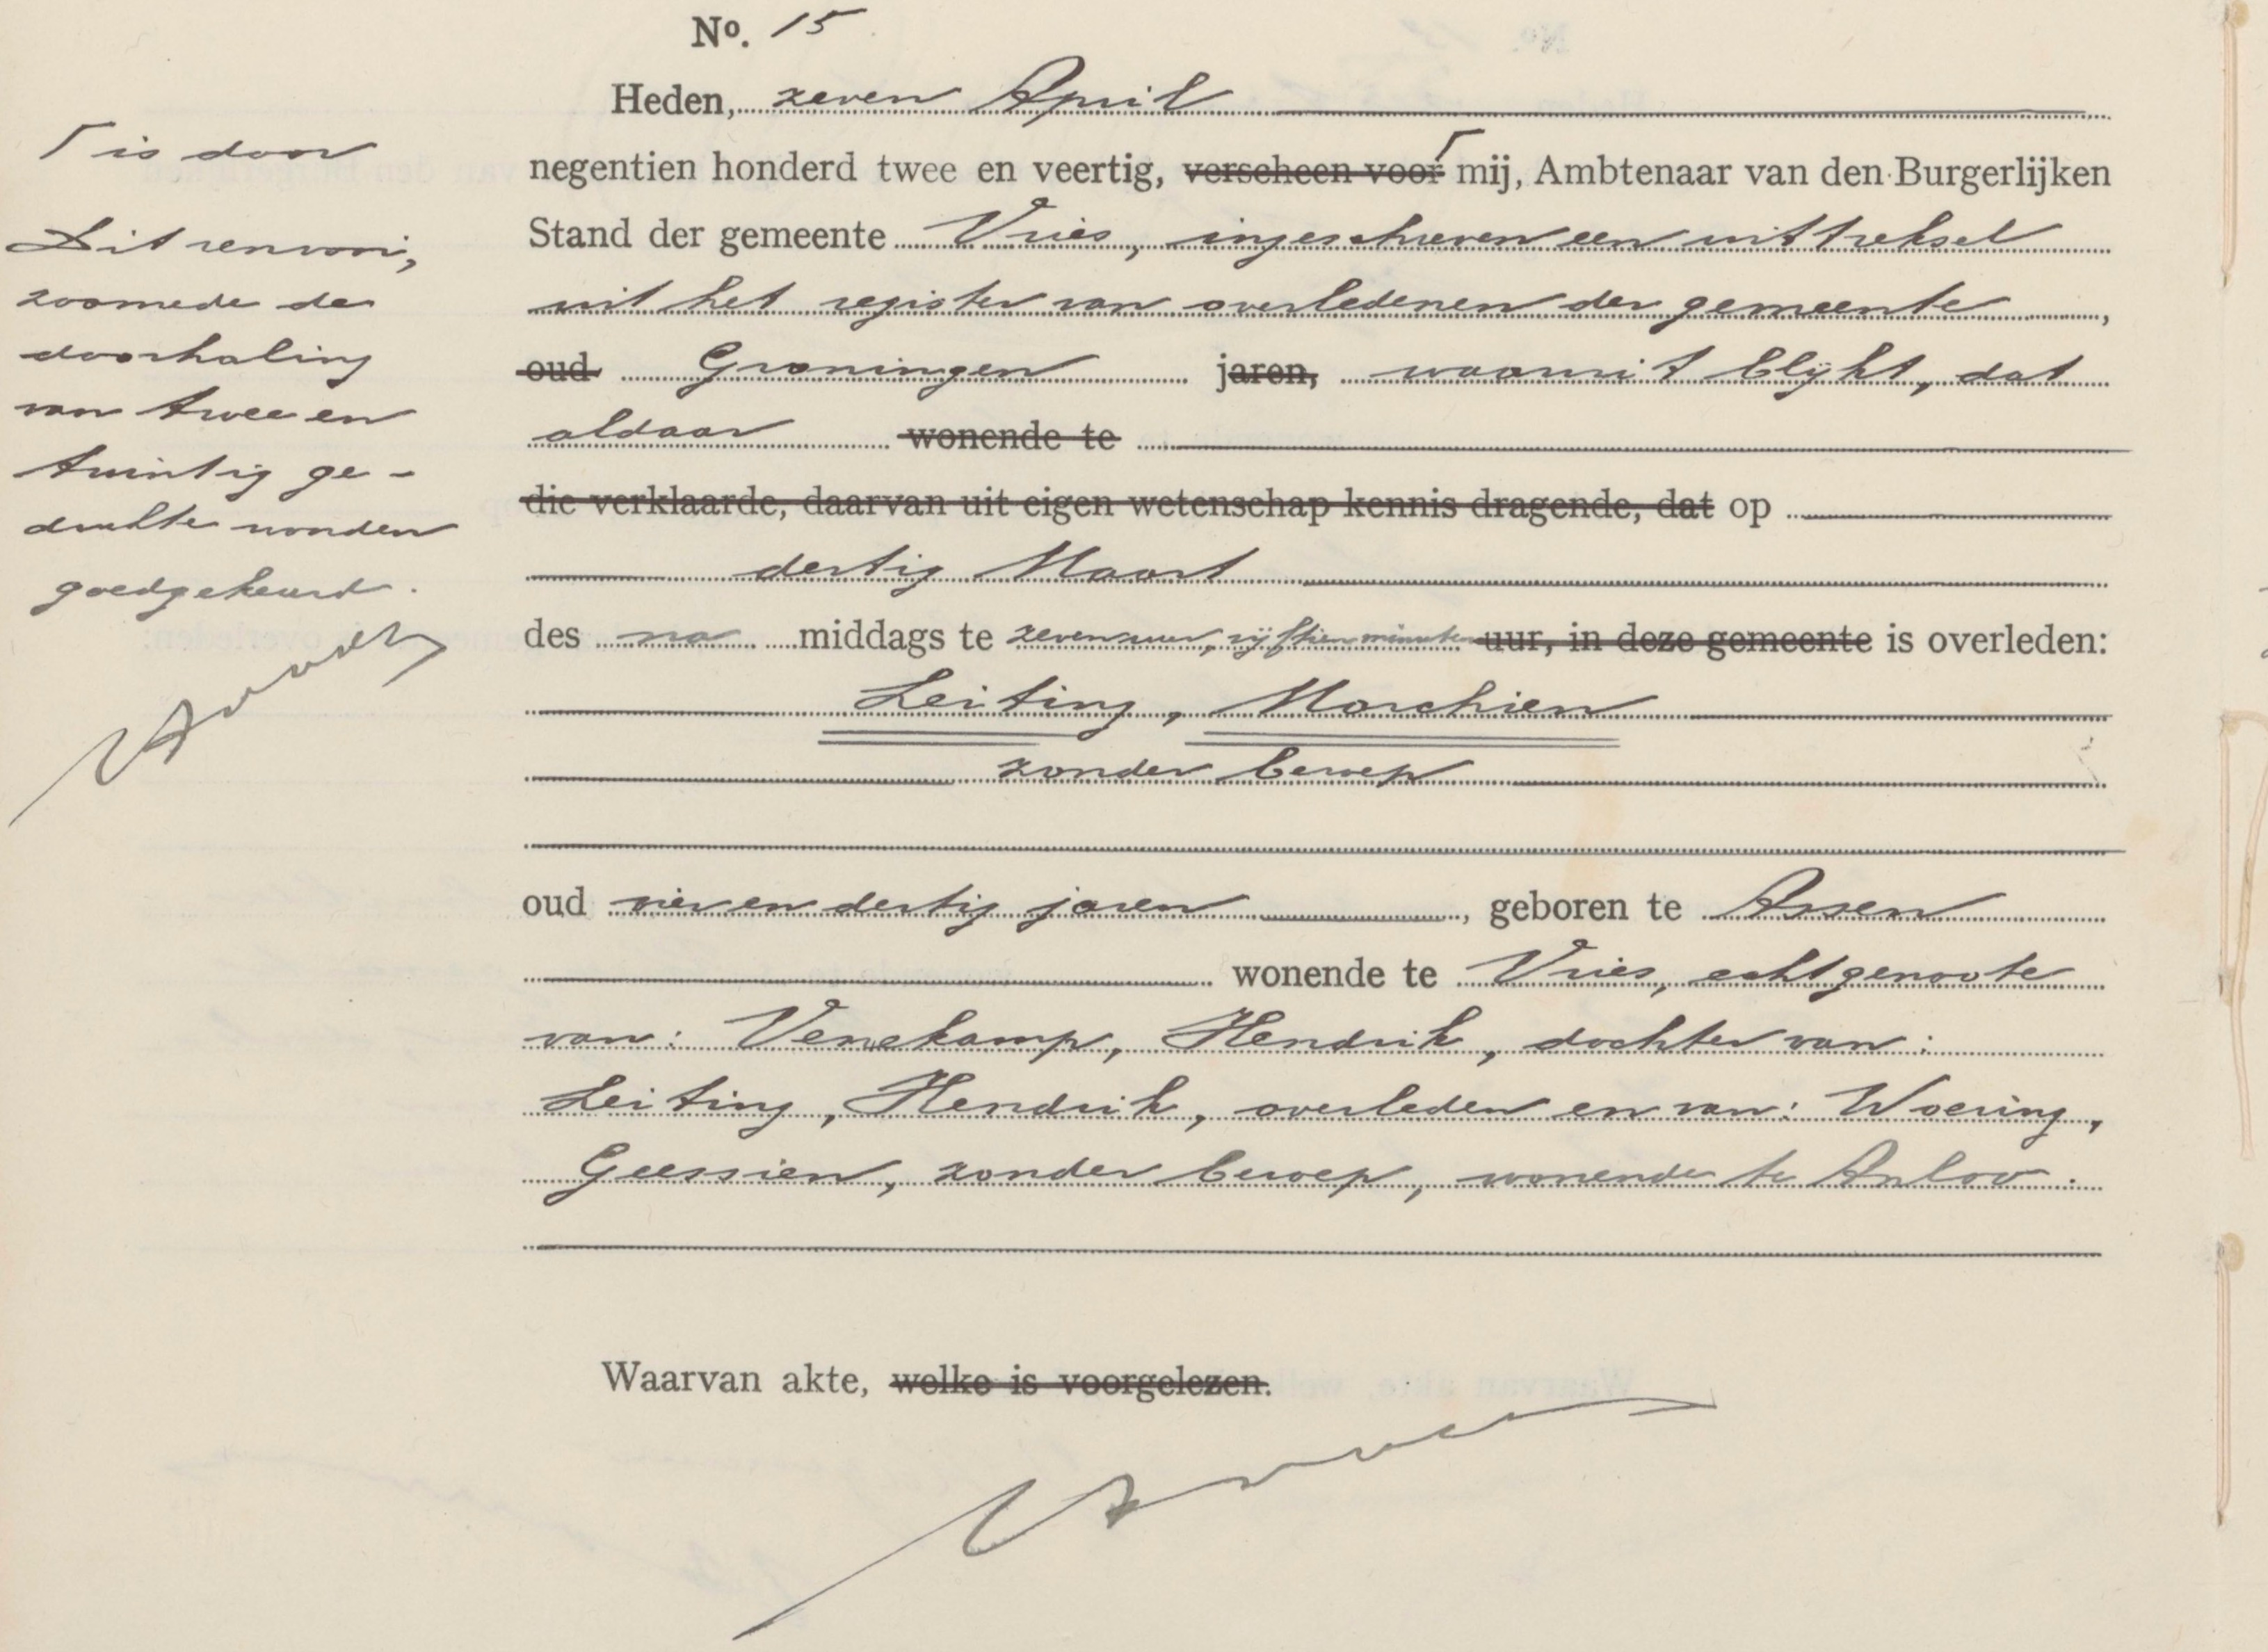 No. 15
Heden, zeven April
negentien honderd twee en veertig, verscheen voor ⌈ mij, Ambtenaar van den Burgerlijken
Stand der gemeente Vries, ingeschreven een uittreksel
uit het register van overledenen der gemeente,
oud Groningen jaren, waaruit blijkt, dat
aldaar wonende te
die verklaarde, daarvan uit eigen wetenschap kennis dragende, dat op
dertig Maart
des na middags te zeven uur, vijftien minuten uur, in deze gemeente is overleden:
Leiting, Marchien
zonder beroep
oud vier en dertig jaren, geboren te Assen
wonende te Vries, echtgenoote
van: Venekamp, Hendrik, dochter van:
Leiting, Hendrik, overleden en van: Woering,
Geessien, zonder beroep, wonende te Anloo.
Waarvan akte, welke is voorgelezen.
⌈ is door
Dit renvooi,
zoomede de
doorhaling
van twee en
twintig ge-
drukte woorden
goedgekeurd.